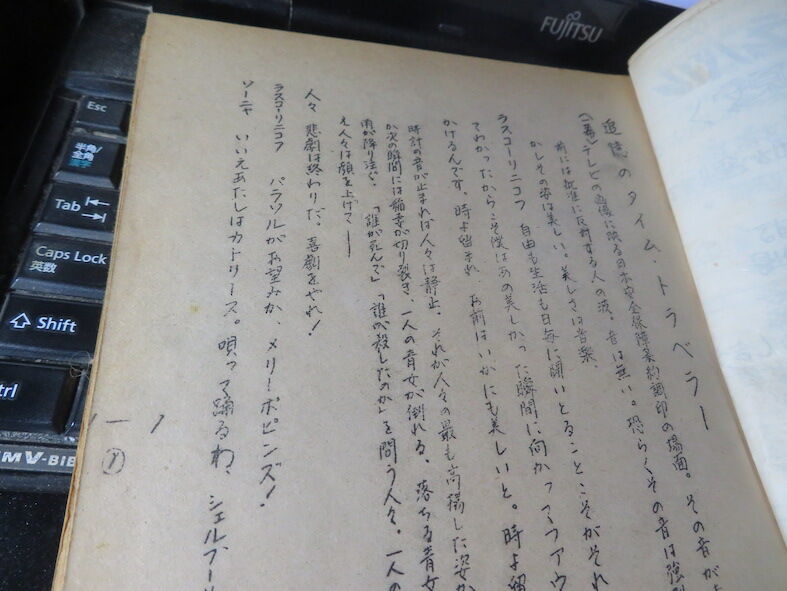 FUJITSU
Esc
半角/
全角
漢字
Tab
Caps Lock
英数
Shift
trl
MV-BIB
追憶のタイム・トラベラー
(一幕)テレビの画像に映る日本安全保障条約調印の場面。その音が
前には批准に反対する人の波。音は無い。恐らくその音は強
かしその姿は美しい。美しさは音楽、
ラスコーリニコフ 自由も生活も日毎に闘いとること、こそがそれ
てわかったからこそ僕はあの美しかった瞬間に向かってファウ
かけるんです。時よ留まれ、お前はいかにも美しいと。時よ留
時計の音が止まれば人々は静止、それが人々の最も高揚した姿か
か次の瞬間には稲妻が切り裂き、一人の青女が倒れる、落ちる青女
雨が降り注ぐ、「誰が死んで」「誰が殺したのか」を問う人々。一人の
え人々は顔を上げて――
人々 悲劇は終わりだ。喜劇をやれ!
ラスコーリニコフ パラソルがお望みか、メリー・ポピンズ!
ソーニャ いいえあたしはカトリーヌ。唄って踊るわ、シェルブール
1